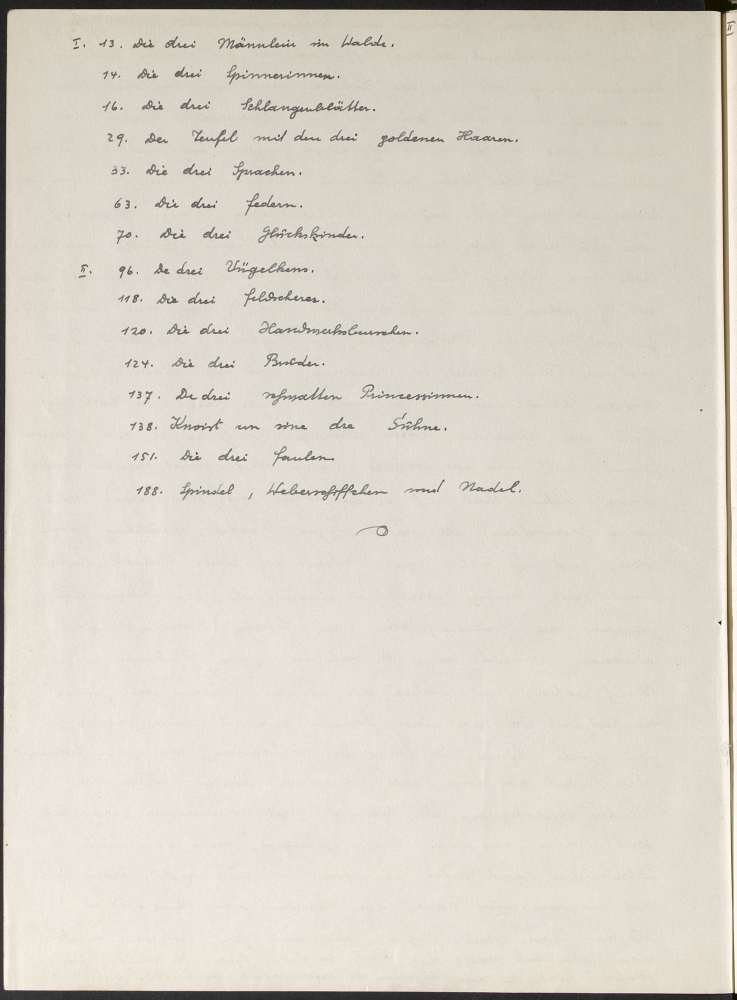 I. 13. Die drei Männlein im Walde.
14. Die drei Spinnerinnen.
16. Die drei Schlangenblätter.
29. Der Teufel mit den drei goldenen Haaren.
33. Die drei Sprachen.
63. Die drei Federn.
70. Die drei Glückskinder.
II. 96. De drei Vügelkens.
118. Die drei Feldscherer.
120. Die drei Handwerksburschen.
124. Die drei Brüder.
137. De drei schwatten Prinzessinnen.
138. Knoist un sine dre Sühne.
151. Die drei Faulen
188. Spindel, Weberschiffchen und Nadel.
II